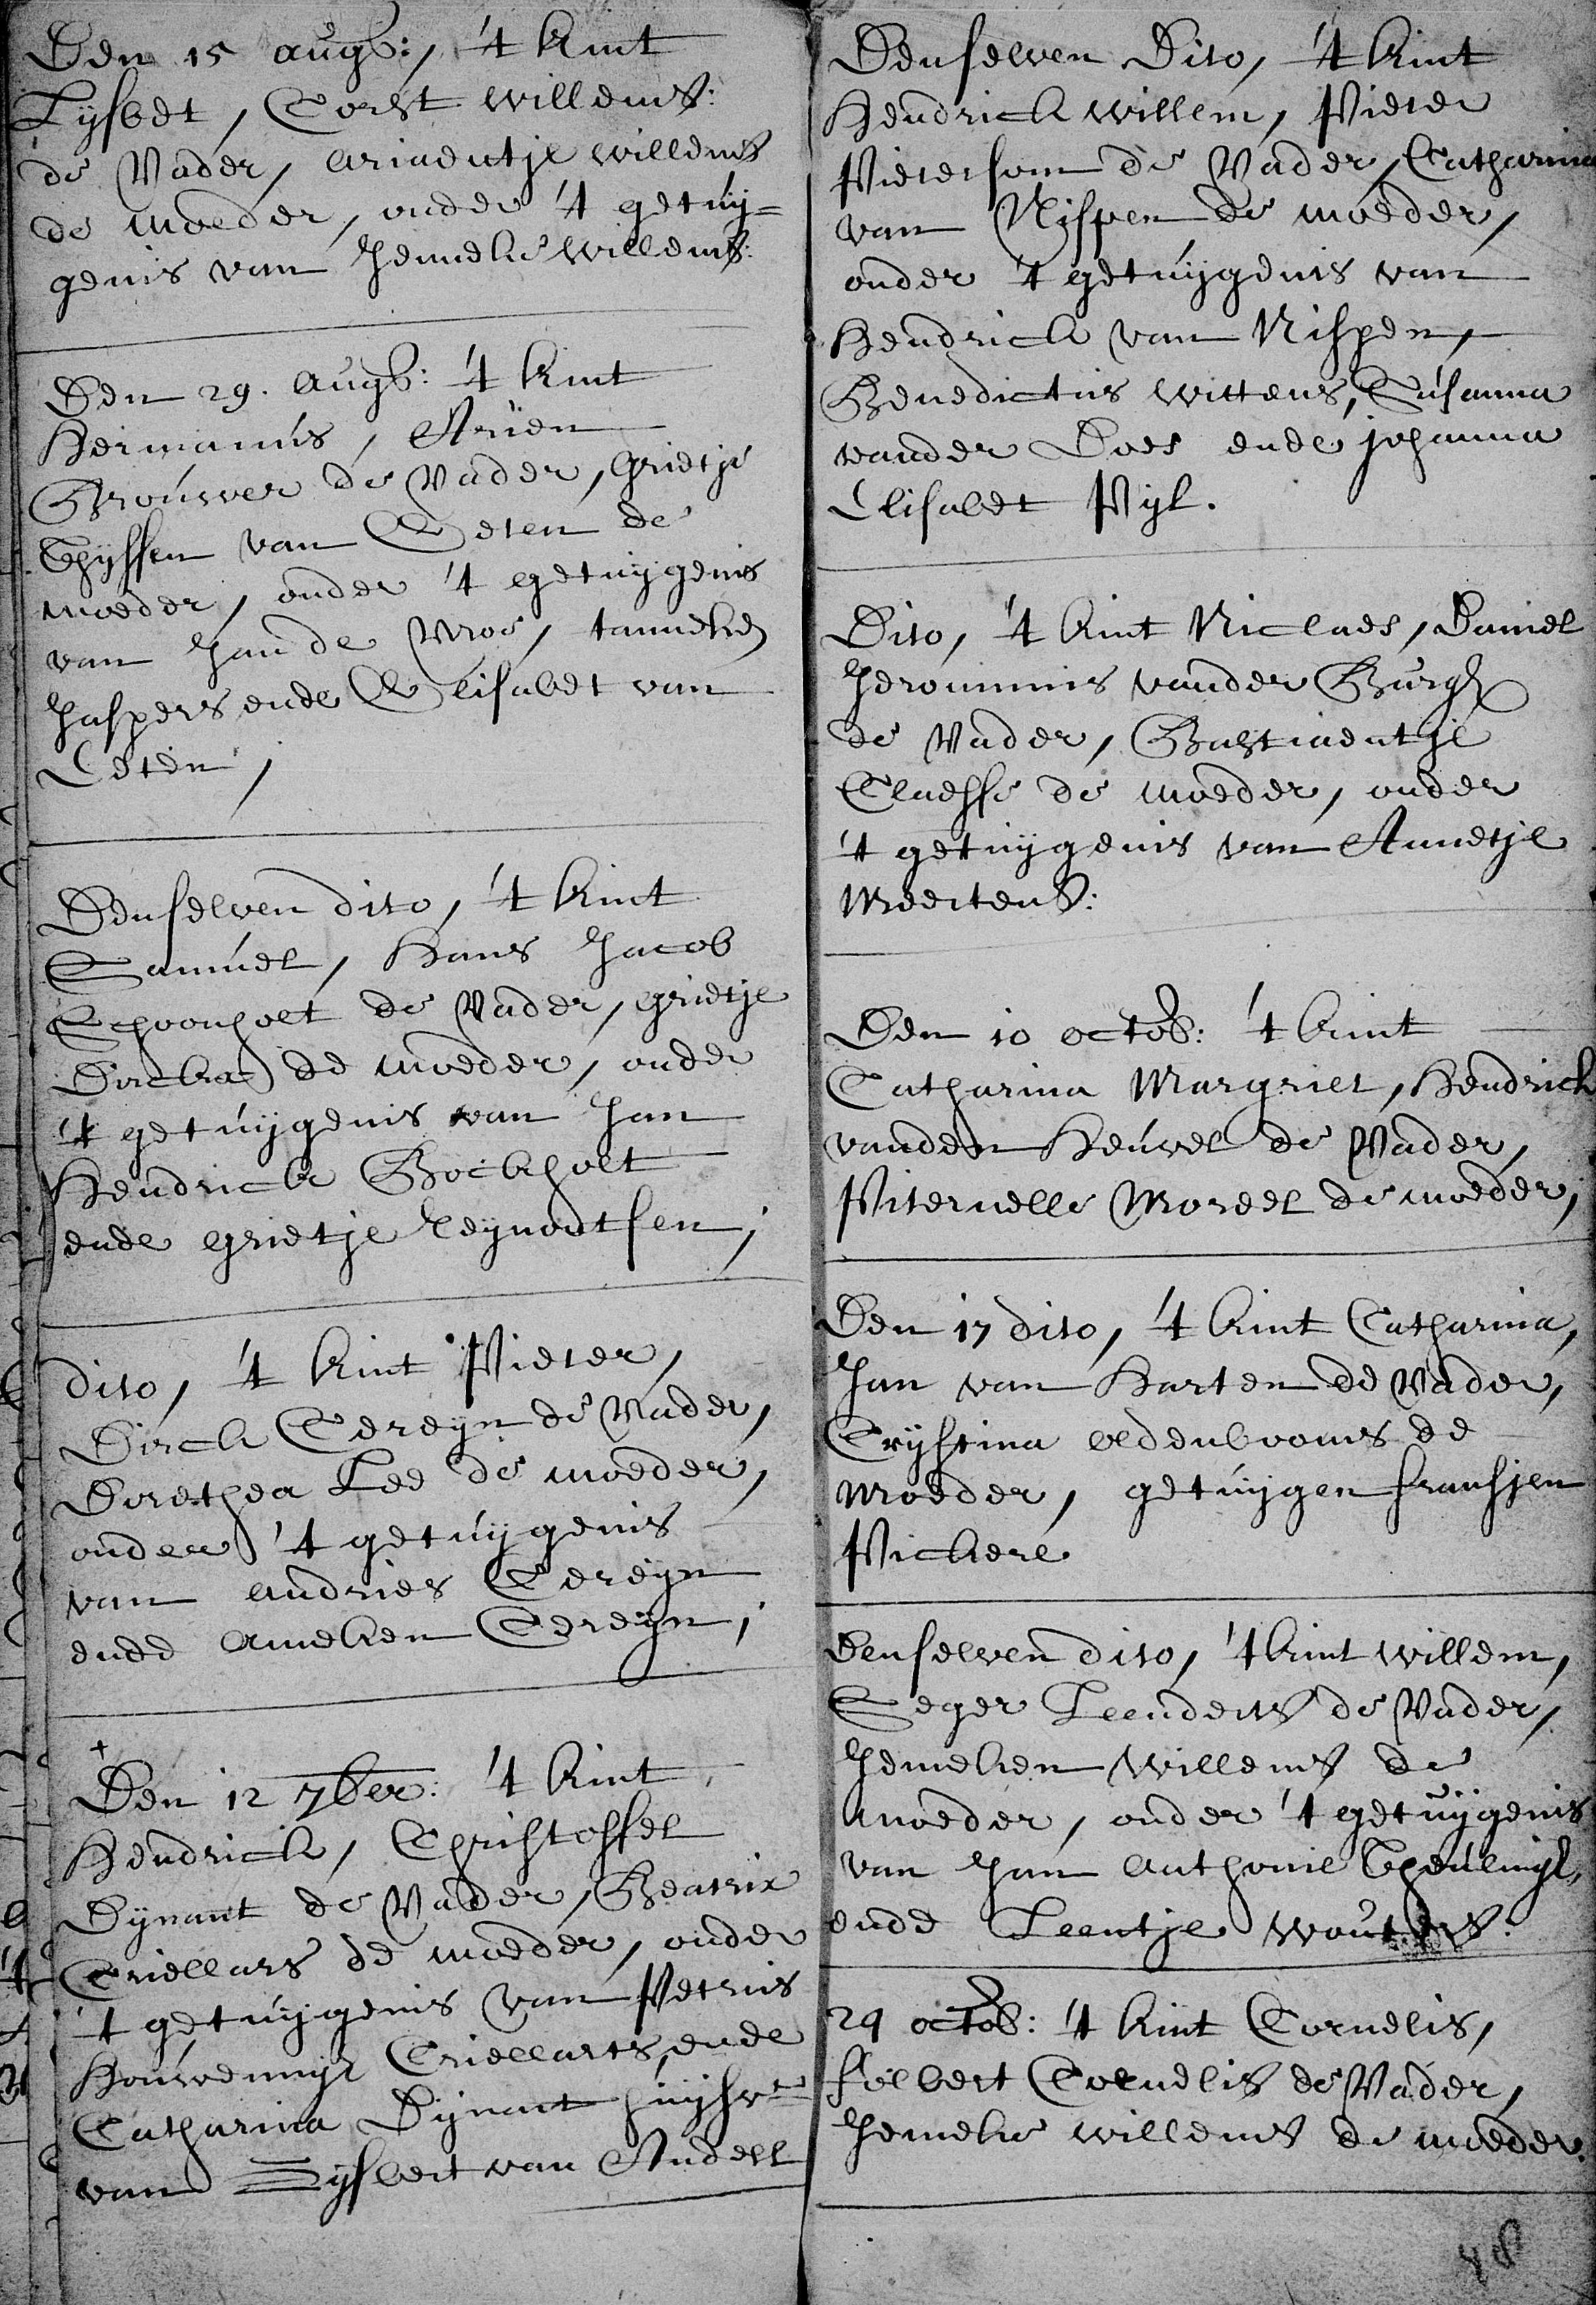 Den 15 augs:, 't kint
Lysbet, Corst willems:
de Vader, ariaentje willems
de moeder, onder 't getuy=
genis van Jenneke willems:
Den 29. augs: 't kint
Hermanús, Arien
Broúwer de Vader, Grietje
Thyssen van Eeten de
moeder, onder 't getuygenis
van Jan de Vroe, tanneke
Jaspers ende Elisabet van
Eeten;
Denselven dito, 't kint
Samúel, Hans Jacob
Schoonholt de Vader, grietje
Dircks de moeder, onder
't getuygenis van Jan
Hendrick Bockholt
ende grietje Reynoutsen;
dito, 't kint Pieter,
Dirck Cereyn de Vader,
Dorethea Lee de moeder,
onder 't getuygenis
van andries Cereyn
ende anneken Cereyn;
+
Den 12 7ber: 't kint
Hendrick, Christoffel
Dynant de Vader, Beatrix
Criellars de moeder, onder
't getuygenis van Petrus
Houweningh Criellarts, ende
Catharina Dynant huysvr
van Gysbert van Andell
Denselven Dito, 't kint
Hendrick willem, Pieter
Pietersom de Vader, Catharina
van Nispen de moeder,
onder 't getuygenis van
Hendrick van Nispen,
Benedictus Wittens, Susanna
vander Does ende johanna
Elisabet Pyl.
Dito, 't kint Niclaes, Daniel
Jeronimus vander Burgh
de Vader, Bastiaentje
Claesse de moeder, onder
't getuygenis van Annetje
Meertens:
Den 10 octob: 't kint
Catharina Margriet, Hendrick
vanden Heúvel de Vader,
Piternelle Moreel de moeder,
Den 17 dito, 't kint Catharina,
Jan van Harten de Vader,
Crystina oldenbooms de
moeder, getuygen fransjen
Pickere
Denselven dito, 't kint willem,
Seger Leenderts de Vader,
Jenneken willems de
moeder, onder 't getuygenis
van Jan anthonie
ende Leentje wouters.
29 octob: 't kint Cornelis,
folbert Cornelis de Vader,
Jenneke willems de moeder.